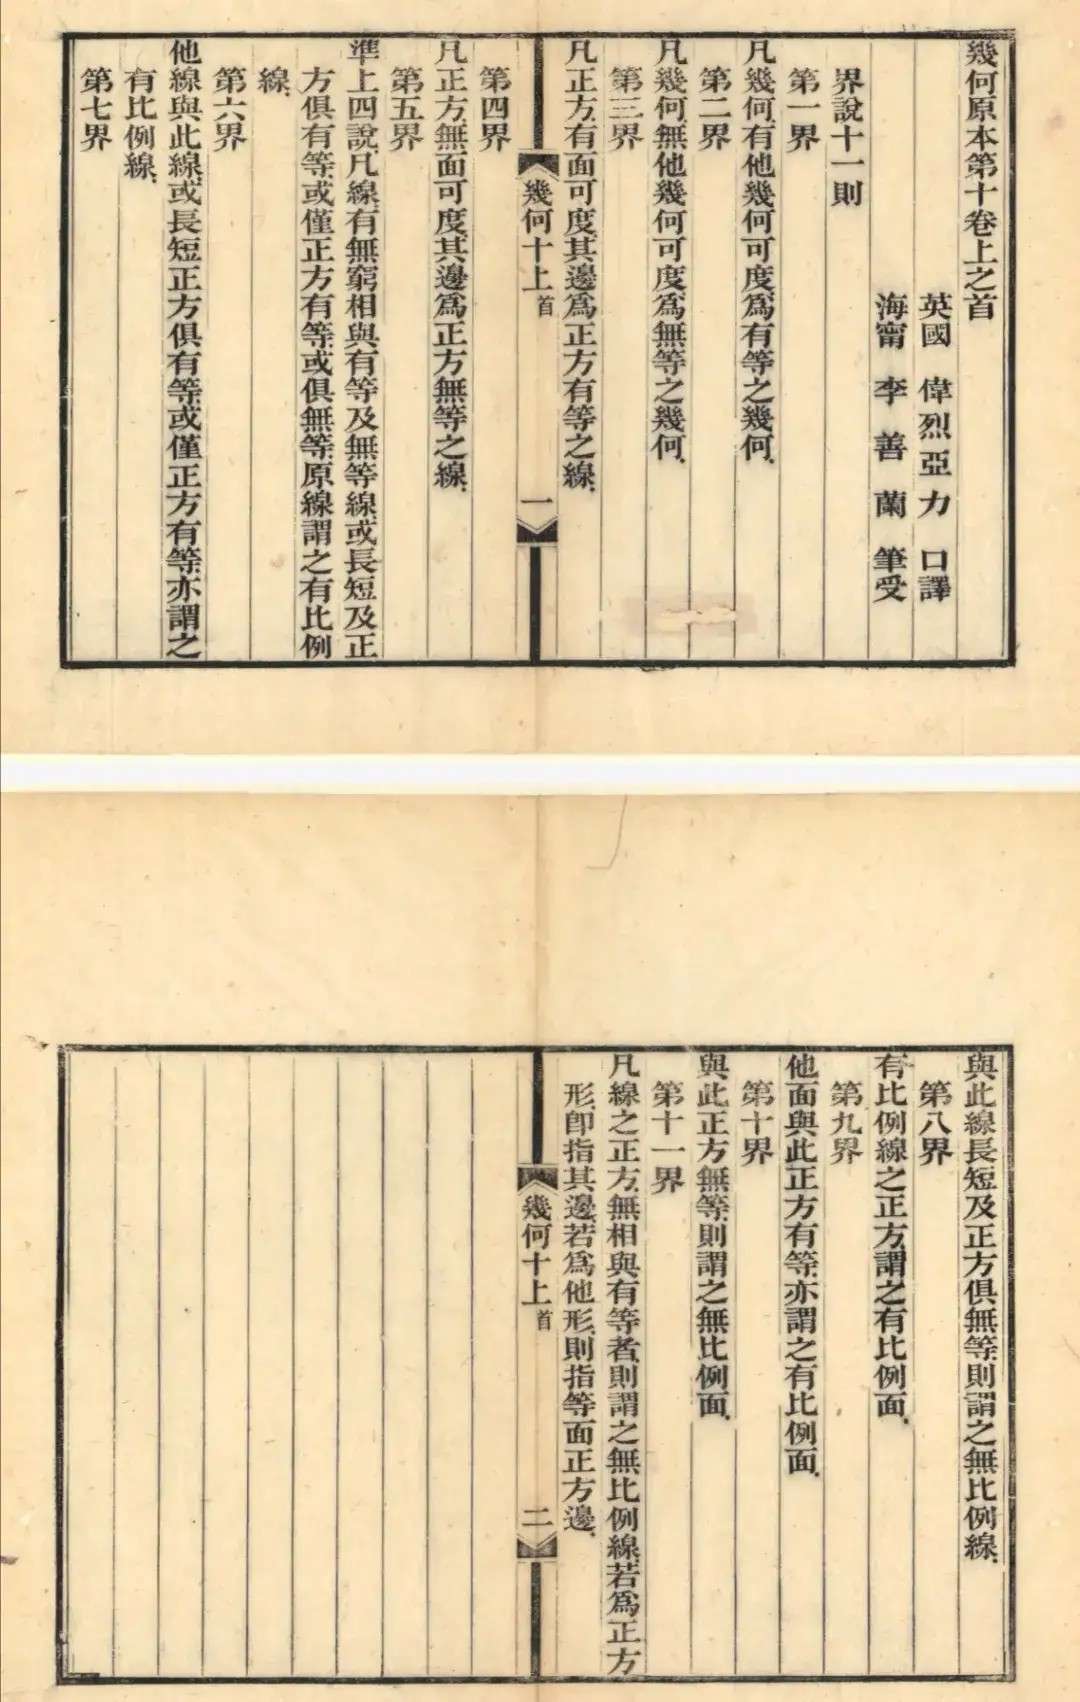 幾何原本第十卷上之首
英國 偉烈亞力 口譯
海甯 李善蘭 筆受
界說十一則
第一界
凡幾何、有他幾何可度、爲有等之幾何、
第二界
凡幾何、無他幾何可度、爲無等之幾何、
第三界
凡正方、有面可度、其邊爲正方有等之線、
幾何十上首
一
第四界
凡正方、無面可度、其邊爲正方無等之線、
第五界
準上四說、凡線、有無窮相與有等及無等線、或長短及正
方俱有等、或僅正方有等、或俱無等、原線謂之有比例
線、
第六界
他線與此線、或長短正方俱有等、或僅正方有等、亦謂之
有比例線、
第七界
與此線長短及正方俱無等、則謂之無比例線、
第八界
有比例線之正方、謂之有比例面、
第九界
他面與此正方有等、亦謂之有比例面、
第十界
與此正方無等、則謂之無比例面、
第十一界
凡線之正方、無相與有等者、則謂之無比例線、若爲正方
形、卽指其邊、若爲他形、則指等面正方邊、
幾何十上首
二